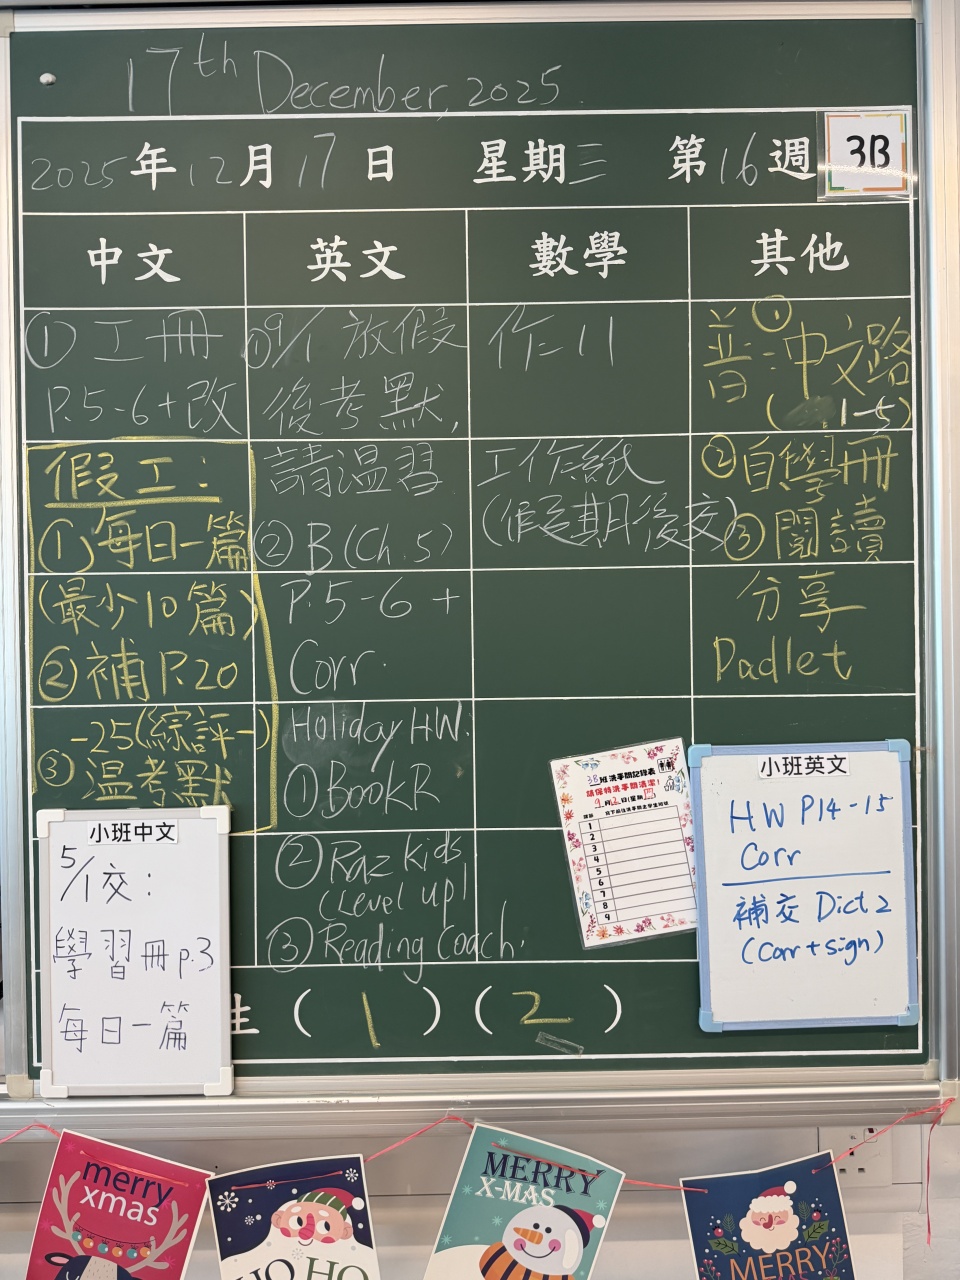 17th December, 2025
2025年12月17日 星期三 第16週
3B
中文
①工冊
P.5-6+改
假工:
①每日一篇
(最少10篇)
②補P.20
-25(綜評一)
③溫考默
英文
①9/1 放假
後考默,
請溫習
②B(Ch.5)
P.5-6 +
Corr.
Holiday HW:
①BookR
②Raz kids
(Level up)
③Reading Coach.
數學
作:11
工作紙
(假期後交)
其他
①
普:中文路
(1-5)
②自學冊
③閱讀
分享
Padlet
生 ( 1 ) ( 2 )
小班中文
5/1交:
學習冊 p.3
每日一篇
3B班洗手間記錄表
請保持洗手間清潔!
1
2
3
4
5
6
7
8
9
小班英文
HW P14-15
Corr
補交 Dict 2
(Corr + sign)
merry
xmas
HO HO
MERRY
X-MAS
MERRY